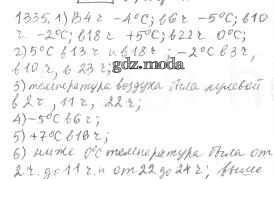 1335. 1) В 4 ч -4°С; в 6 ч -5°С; в 10
ч -2°С; в 18 ч +5°С; в 22 ч 0°С;
2) 5°С в 13 ч и в 18 ч; -2°С в 3 ч,
в 10 ч, в 23 ч;
gdz.moda
3) температура воздуха была нулевой
в 2 ч, 11 ч, 22 ч;
4) -5°С в 6 ч;
5) +7°С в 16 ч;
6) ниже 0°С температура была от
2 ч. до 11 ч. и от 22 до 24 ч; выше